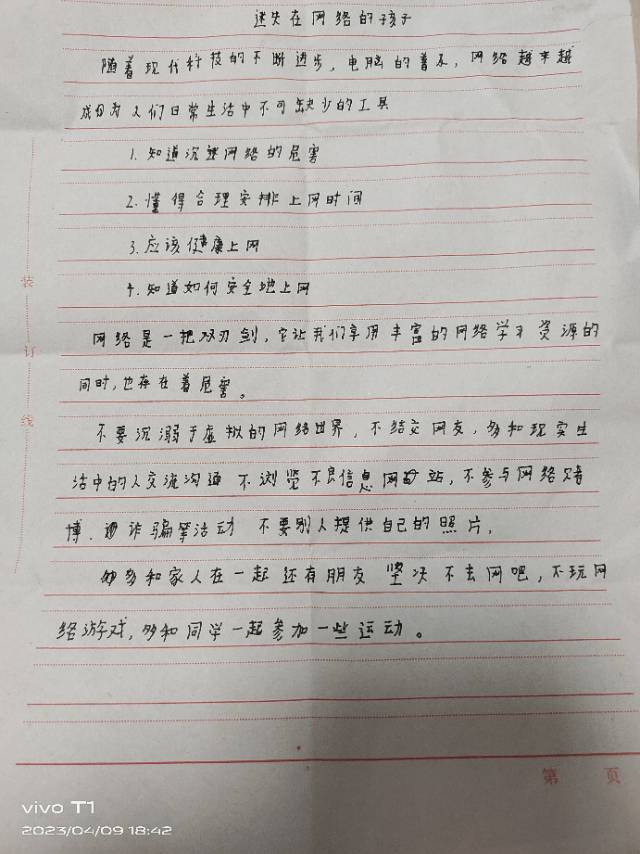 迷失在网络的孩子
随着现代科技的不断进步，电脑的普及，网络越来越
成为人们日常生活中不可缺少的工具
1. 知道沉迷网络的危害
2. 懂得合理安排上网时间
3. 应该健康上网
4. 知道如何安全地上网
网络是一把双刃剑，它让我们享用丰富的网络学习资源的
同时，也存在着危害。
不要沉溺于虚拟的网络世界，不结交网友，多和现实生
活中的人交流沟通 不浏览不良信息网站，不参与网络赌
博、诈骗等活动 不要别人提供自己的照片，
多和家人在一起 还有朋友 坚决不去网吧，不玩网
络游戏，多和同学一起参加一些运动。
装
订
线
第 页
vivo T1
2023/04/09 18:42